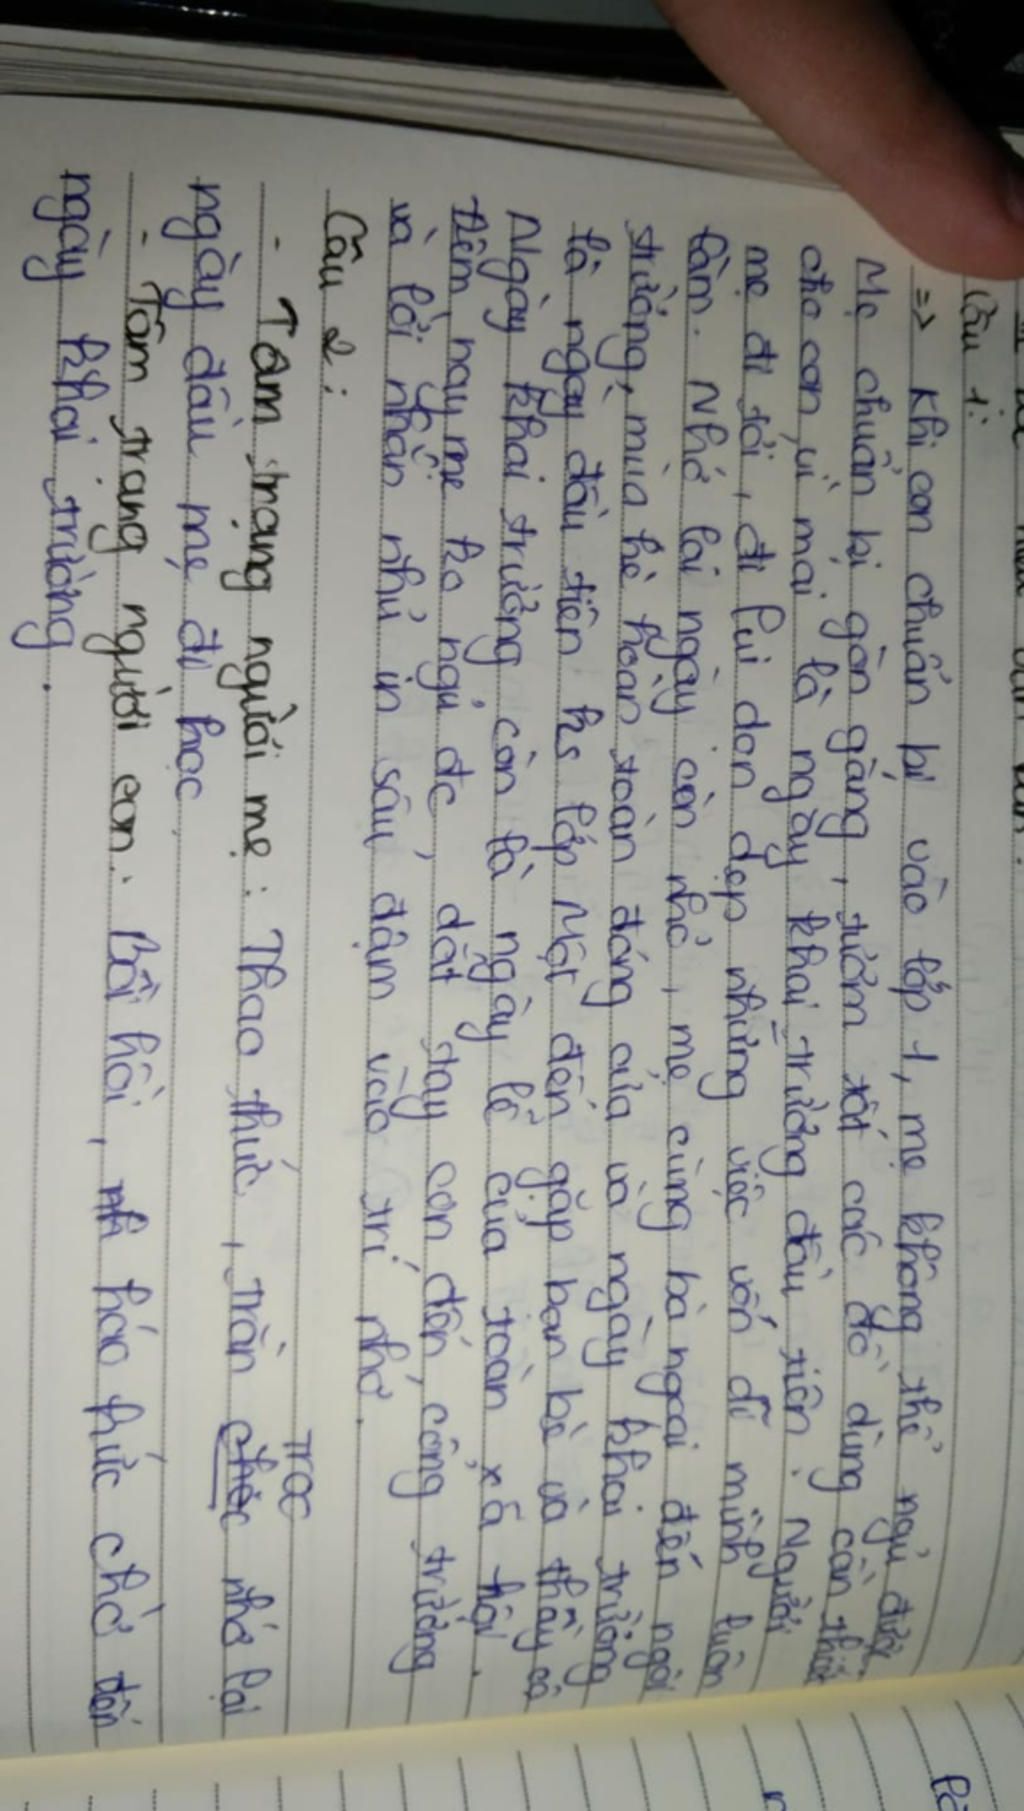 Câu 1:
=> Khi con chuẩn bị vào lớp 1, mẹ không thể ngủ được.
Mẹ chuẩn bị gọn gàng, tươm tất các đồ dùng cần thiết
cho con, vì mai là ngày khai trường đầu tiên. Người
mẹ đi tới, đi lui dọn dẹp những việc vốn dĩ mình luôn
làm. Nhớ lại ngày còn nhỏ, mẹ cùng bà ngoại đến ngôi
trường, mùa hè hoàn toàn đóng cửa và ngày khai trường
là ngày đầu tiên hs lớp Một đến gặp bạn bè và thầy cô
Ngày khai trường còn là ngày lễ của toàn xã hội.
Đêm nay mẹ ko ngủ đc, dắt tay con đến cổng trường
và lời nhắn nhủ in sâu đậm vào trí nhớ.
Câu 2:
- Tâm trạng người mẹ: Thao thức, trằn trọc nhớ lại
ngày đầu mẹ đi học.
- Tâm trạng người con: Bồi hồi, háo hức chờ đến
ngày khai trường.